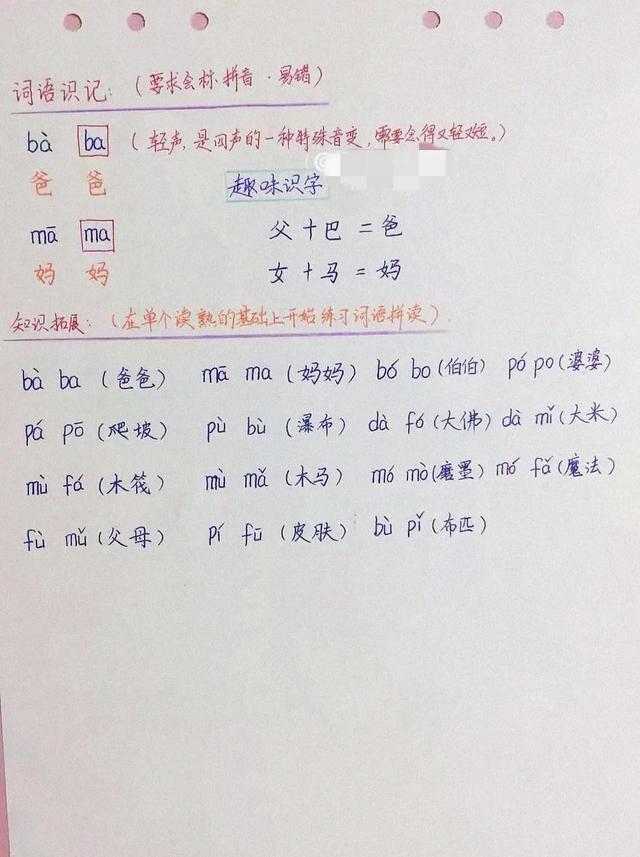 词语识记：（要求会标拼音·易错）
bà ba （轻声，是四声的一种特殊音变，需要念得又轻又短。）
爸 爸 趣味识字
mā ma 父＋巴＝爸
妈 妈 女＋马＝妈
知识拓展：（在单个读熟的基础上开始练习词语拼读）
bà ba（爸爸） mā ma（妈妈） bó bo（伯伯） pó po（婆婆）
pá pō（爬坡） pù bù（瀑布） dà fó（大佛） dà mǐ（大米）
mù fá（木筏） mù mǎ（木马） mó mò（磨墨） mó fǎ（魔法）
fù mǔ（父母） pí fū（皮肤） bù pǐ（布匹）